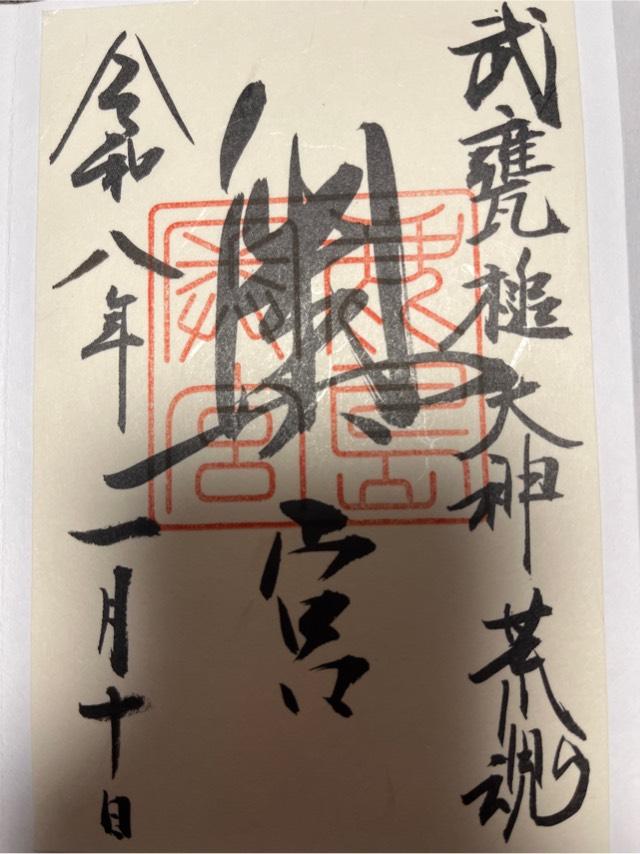 武甕槌大神 荒魂
奥宮
鹿島奥宮
令和八年一月十日